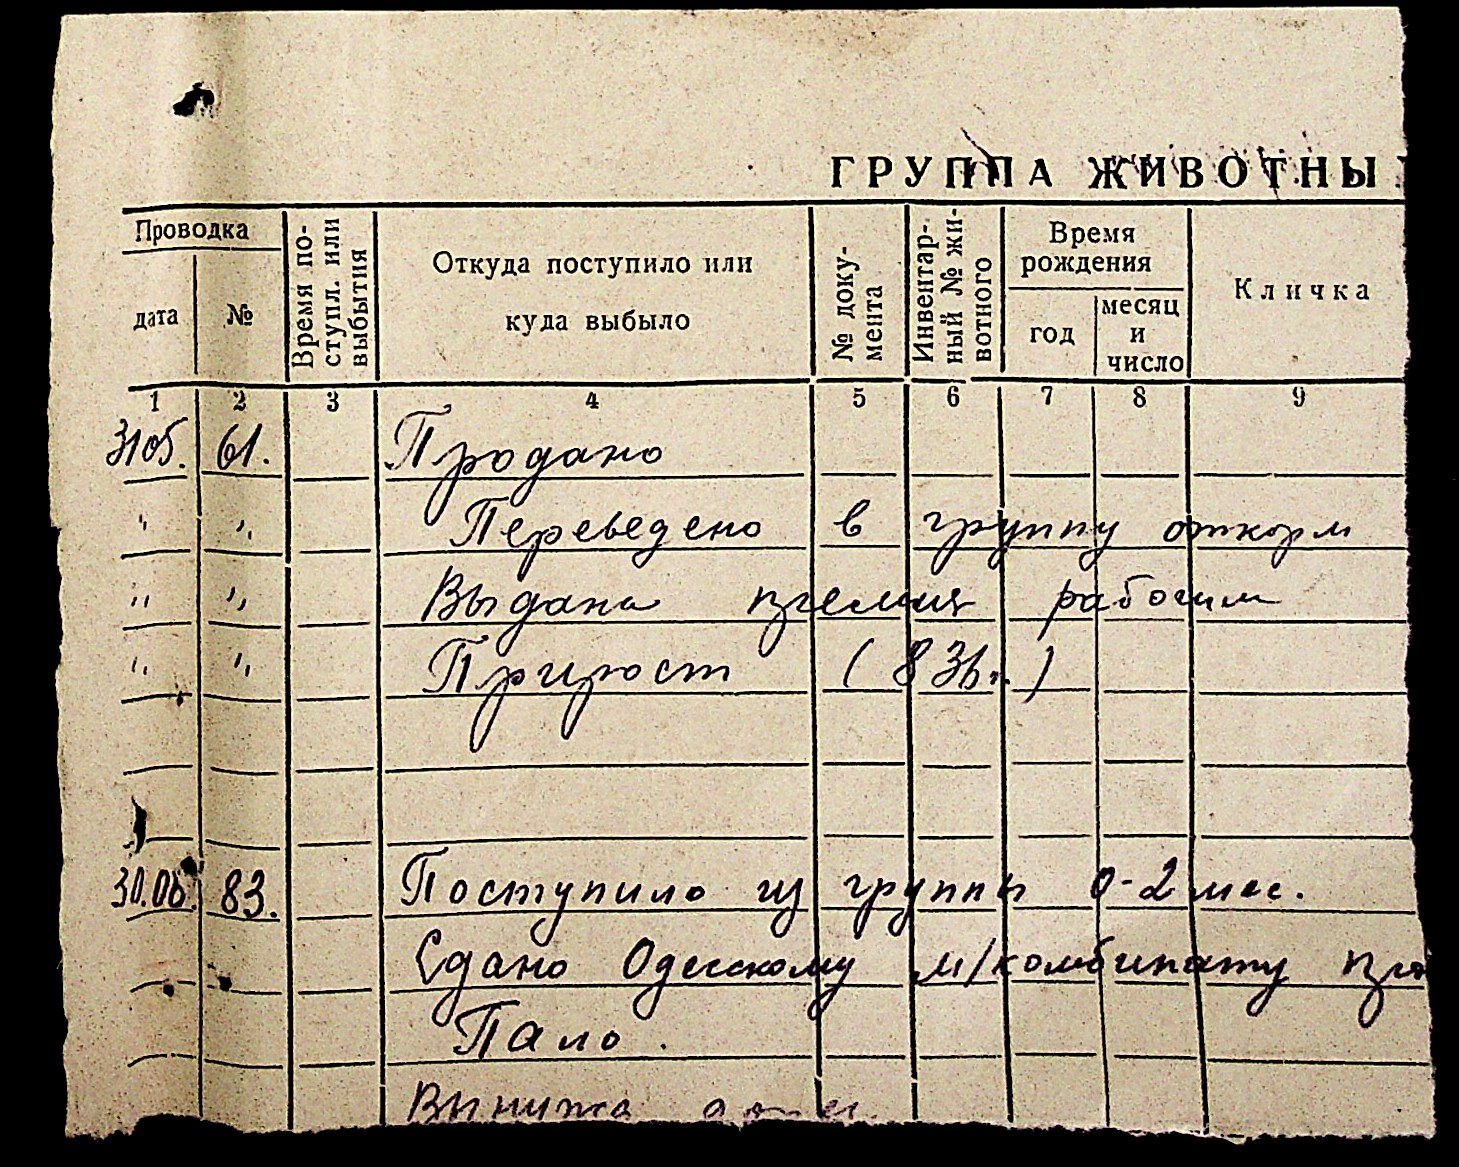 ГРУППА ЖИВОТНЫ
Проводка
дата
№
Время по-
ступл. или
выбытия
Откуда поступило или
куда выбыло
№ доку-
мента
Инвентар-
ный № жи-
вотного
Время
рождения
год
месяц
и
число
Кличка
1 2 3 4 5 6 7 8 9
3105. 61. Продано
" " Переведено в группу откорм
" " Выдана премия рабочим
" " Прирост (83
30.06. 83. Поступило из группы 0-2 мес.
Сдано Одесскому м/комбинату
Пало.